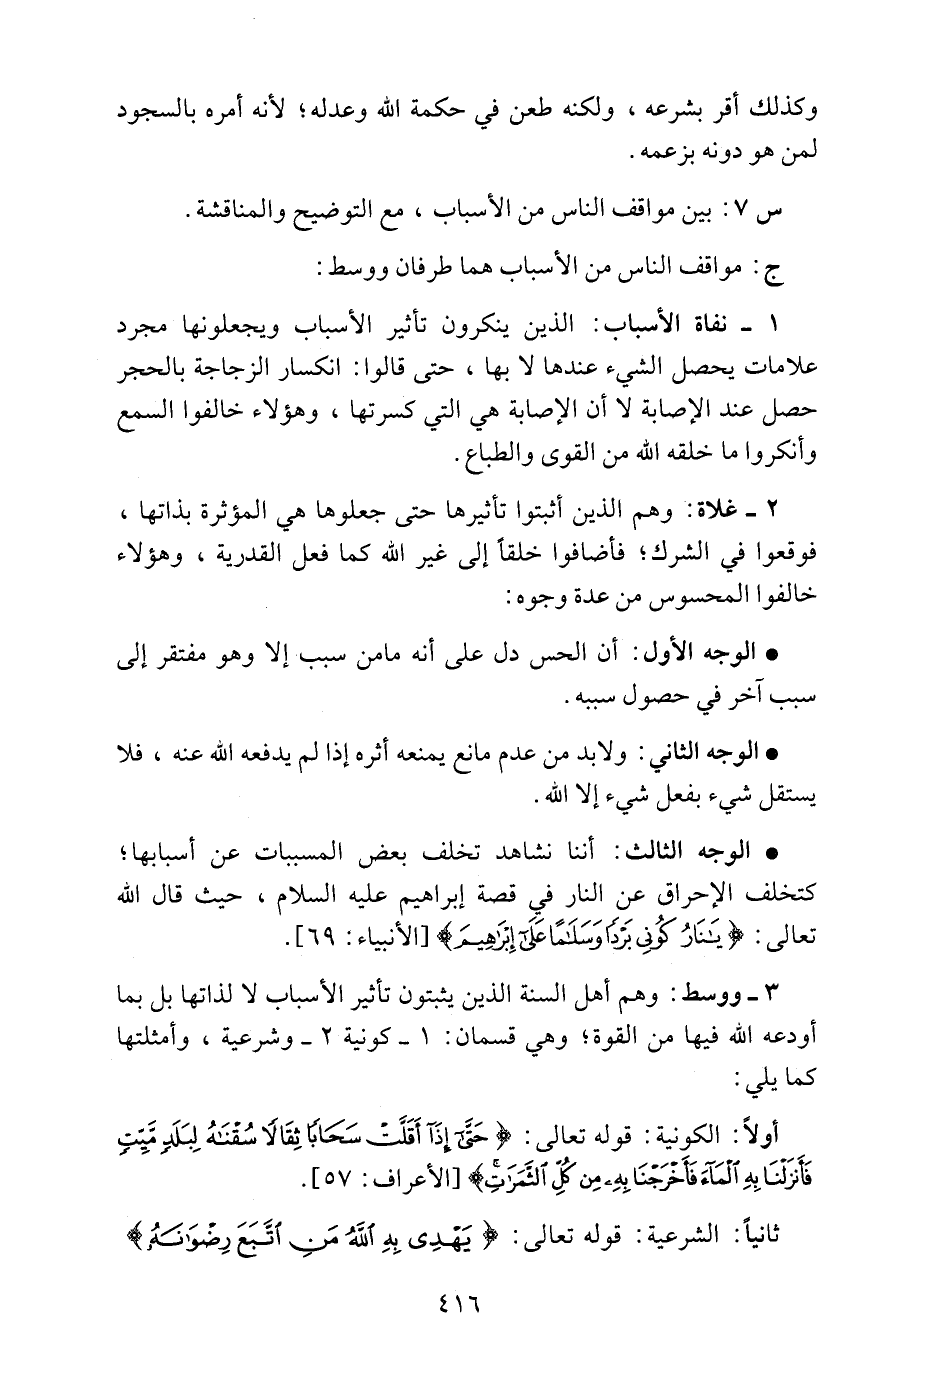 وكذلك أقر بشرعه ، ولكنه طعن في حكمة الله وعدله؛ لأنه أمره بالسجود
لمن هو دونه بزعمه .
س ٧ : بين مواقف الناس من الأسباب ، مع التوضيح والمناقشة .
ج : مواقف الناس من الأسباب هما طرفان ووسط :
١ ـ نفاة الأسباب : الذين ينكرون تأثير الأسباب ويجعلونها مجرد
علامات يحصل الشيء عندها لا بها ، حتى قالوا : انكسار الزجاجة بالحجر
حصل عند الإصابة لا أن الإصابة هي التي كسرتها ، وهؤلاء خالفوا السمع
وأنكروا ما خلقه الله من القوى والطباع .
٢ ـ غلاة : وهم الذين أثبتوا تأثيرها حتى جعلوها هي المؤثرة بذاتها ،
فوقعوا في الشرك؛ فأضافوا خلقاً إلى غير الله كما فعل القدرية ، وهؤلاء
خالفوا المحسوس من عدة وجوه :
● الوجه الأول : أن الحس دل على أنه مامن سبب إلا وهو مفتقر إلى
سبب آخر في حصول سببه .
● الوجه الثاني : ولابد من عدم مانع يمنعه أثره إذا لم يدفعه الله عنه ، فلا
يستقل شيء بفعل شيء إلا الله .
● الوجه الثالث : أننا نشاهد تخلف بعض المسببات عن أسبابها؛
كتخلف الإحراق عن النار في قصة إبراهيم عليه السلام ، حيث قال الله
تعالى : ﴿ يَـٰنَارُ كُونِى بَرْدًا وَسَلَـٰمًا عَلَىٰٓ إِبْرَٰهِيمَ ﴾ [الأنبياء : ٦٩] .
٣ ـ ووسط : وهم أهل السنة الذين يثبتون تأثير الأسباب لا لذاتها بل بما
أودعه الله فيها من القوة؛ وهي قسمان : ١ ـ كونية ٢ ـ وشرعية ، وأمثلتها
كما يلي :
أولاً : الكونية : قوله تعالى : ﴿ حَتَّىٰٓ إِذَآ أَقَلَّتْ سَحَابًا ثِقَالًا سُقْنَـٰهُ لِبَلَدٍ مَّيِّتٍ
فَأَنزَلْنَا بِهِ ٱلْمَآءَ فَأَخْرَجْنَا بِهِۦ مِن كُلِّ ٱلثَّمَرَٰتِ ۚ ﴾ [الأعراف : ٥٧] .
ثانياً : الشرعية : قوله تعالى : ﴿ يَهْدِى بِهِ ٱللَّهُ مَنِ ٱتَّبَعَ رِضْوَٰنَهُۥ ﴾
٤١٦